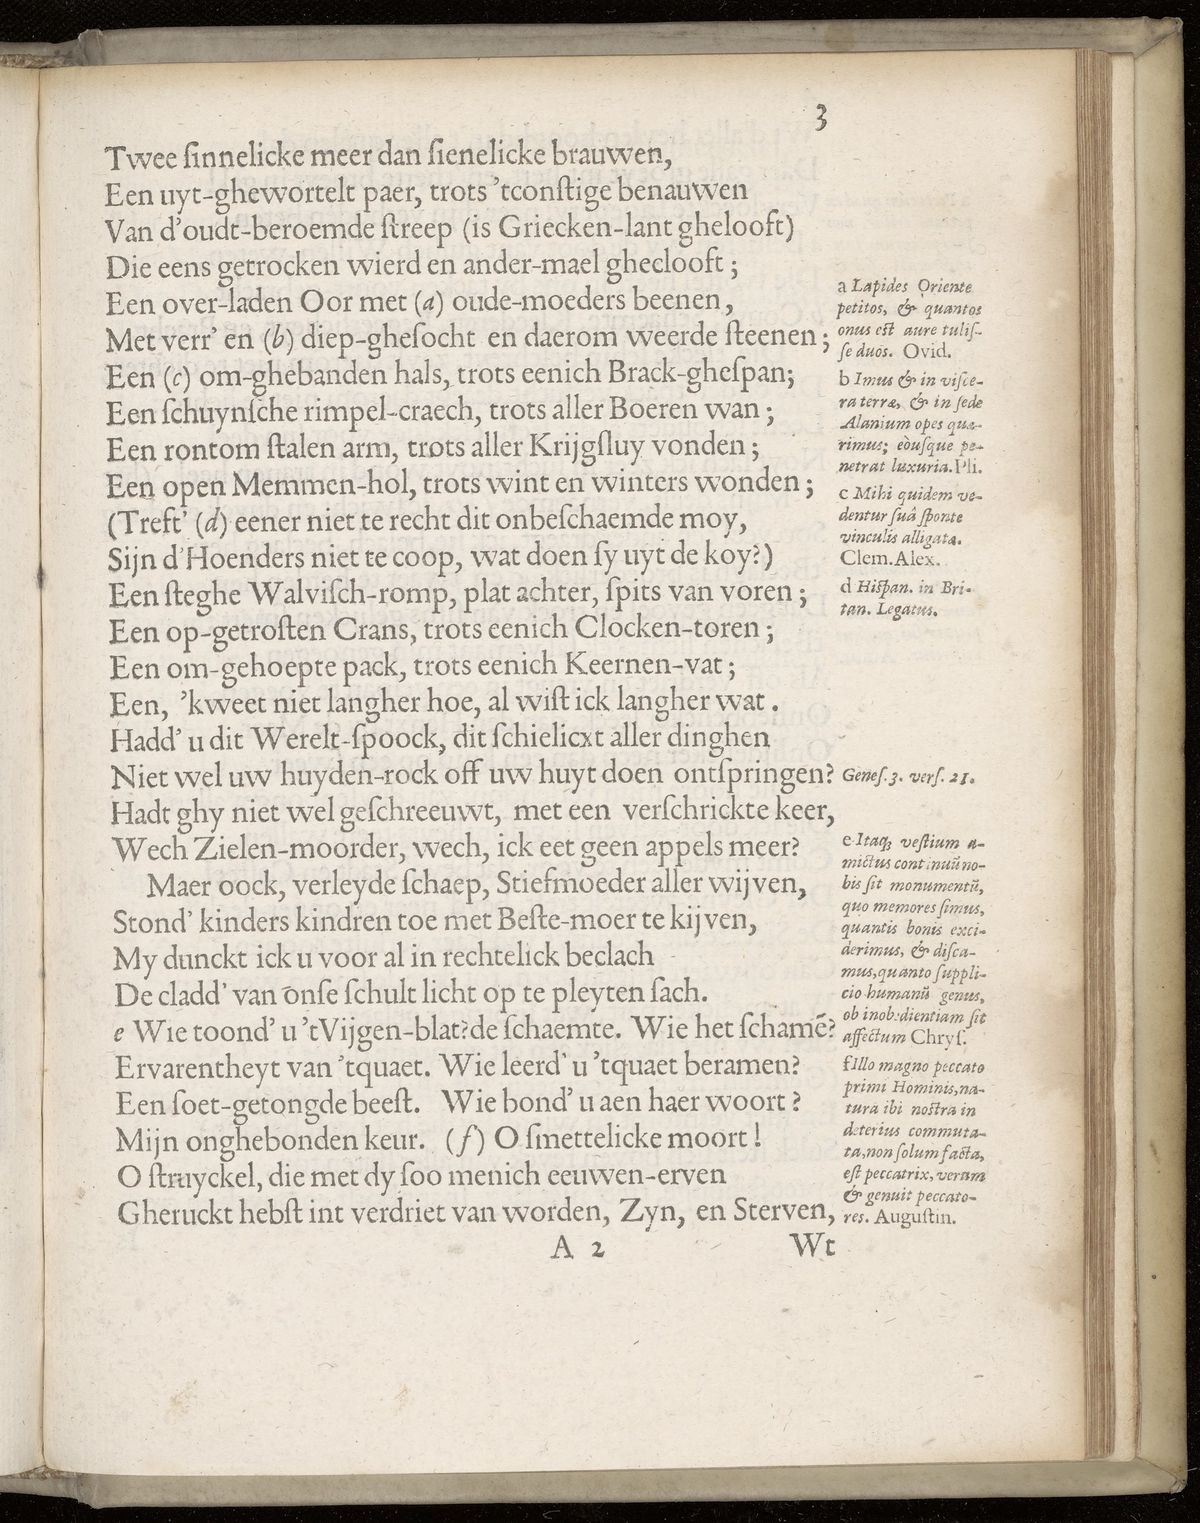 3
Twee ſinnelicke meer dan ſienelicke brauwen,
Een uyt-ghewortelt paer, trots ’tconſtige benauwen
Van d’oudt-beroemde ſtreep (is Griecken-lant ghelooft)
Die eens getrocken wierd en ander-mael gheclooft;
Een over-laden Oor met (a) oude-moeders beenen,
Met verr’ en (b) diep-gheſocht en daerom weerde ſteenen;
Een (c) om-ghebanden hals, trots eenich Brack-gheſpan;
Een ſchuynſche rimpel-craech, trots aller Boeren wan;
Een rontom ſtalen arm, trots aller Krijgſluy vonden;
Een open Memmen-hol, trots wint en winters wonden;
(Treft’ (d) eener niet te recht dit onbeſchaemde moy,
Sijn d’Hoenders niet te coop, wat doen ſy uyt de koy?)
Een ſteghe Walviſch-romp, plat achter, ſpits van voren;
Een op-getroſten Crans, trots eenich Clocken-toren;
Een om-gehoepte pack, trots eenich Keernen-vat;
Een, ’kweet niet langher hoe, al wiſt ick langher wat.
Hadd’ u dit Werelt-ſpoock, dit ſchielicxt aller dinghen
Niet wel uw huyden-rock off uw huyt doen ontſpringen?
Hadt ghy niet wel geſchreeuwt, met een verſchrickte keer,
Wech Zielen-moorder, wech, ick eet geen appels meer?
Maer oock, verleyde ſchaep, Stiefmoeder aller wijven,
Stond’ kinders kindren toe met Beſte-moer te kijven,
My dunckt ick u voor al in rechtelick beclach
De cladd’ van onſe ſchult licht op te pleyten ſach.
e Wie toond’ u ’tVijgen-blat? de ſchaemte. Wie het ſchamē?
Ervarentheyt van ’tquaet. Wie leerd’ u ’tquaet beramen?
Een ſoet-getongde beeſt. Wie bond’ u aen haer woort?
Mijn onghebonden keur. (f) O ſmettelicke moort!
O ſtruyckel, die met dy ſoo menich eeuwen-erven
Gheruckt hebſt int verdriet van worden, Zyn, en Sterven,
A 2
Wt
a Lapides Oriente
petitos, & quantos
onus eſt aure tuliſ-
ſe duos. Ovid.
b Imus & in viſce-
ra terræ, & in ſede
Manium opes quæ-
rimus; eòuſque pe-
netrat luxuria. Pli.
c Mihi quidem ve-
dentur ſuâ ſponte
vinculis alligatæ.
Clem. Alex.
d Hiſpan. in Bri-
tan. Legatus.
Geneſ. 3. verſ. 21.
e Itaq; veſtium a-
mictus continuũ no-
bis ſit monumentũ,
quo memores ſimus,
quantis bonis exci-
derimus, & diſca-
mus, quanto ſuppli-
cio humanũ genus,
ob inobedientiam ſit
affectum Chryſ.
f Illo magno peccato
primi Hominis, na-
tura ibi noſtra in
deterius commuta-
ta, non ſolum facta,
eſt peccatrix, veram
& genuit peccato-
res. Auguſtin.